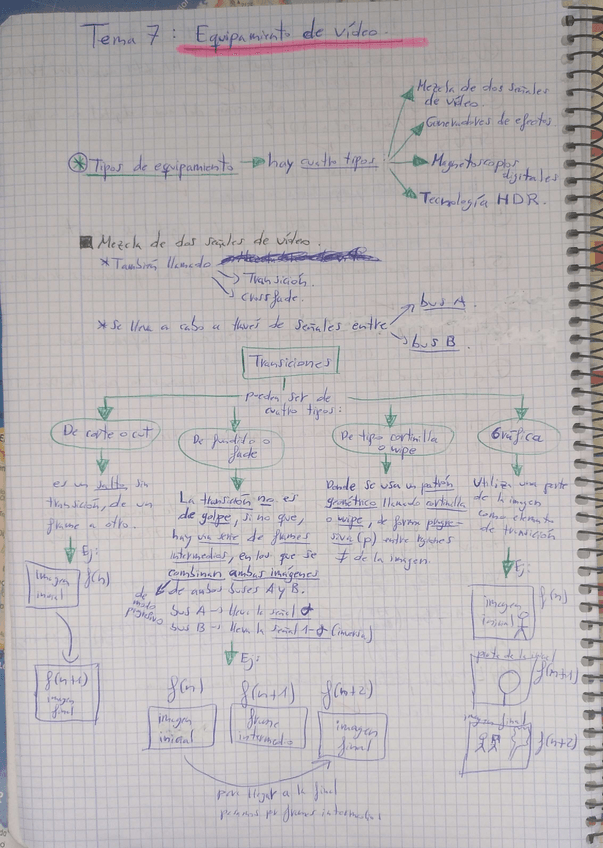 Tema 7: Equipamiento de vídeo.
* Tipos de equipamiento → hay cuatro tipos:
Mezcla de dos señales
de vídeo.
Generadores de efectos
Magnetoscopios
digitales
Tecnología HDR.
Mezcla de dos señales de vídeo.
* También llamado
Transición.
crossfade.
* Se lleva a cabo a través de señales entre
bus A.
bus B.
Transiciones
pueden ser de
cuatro tipos:
De corte o cut
es un salto sin
transición, de un
frame a otro.
Ej:
imagen
inicial
f(n)
f(n+1)
imagen
final
De fundido o
fade
La transición no es
de golpe, si no que,
hay una serie de frames
intermedios, en los que se
combinan ambas imágenes
de ambos buses A y B.
de
modo
bus A → lleva la señal α
bus B → lleva la señal 1-α (inversa)
Ej:
f(n)
f(n+1)
f(n+2)
imagen
inicial
frame
intermedio
imagen
final
para llegar a la final
pasamos por frames intermedios
De tipo cortinilla
o wipe
Donde se usa un patrón
geométrico llamado cortinilla
o wipe, de forma progre-
siva (p) entre regiones
≠ de la imagen.
Gráfica
Utiliza una parte
de la imagen
como elemento
de transición
Ej:
imagen
inicial
f(n)
parte de la
f(n+1)
imagen final
f(n+2)